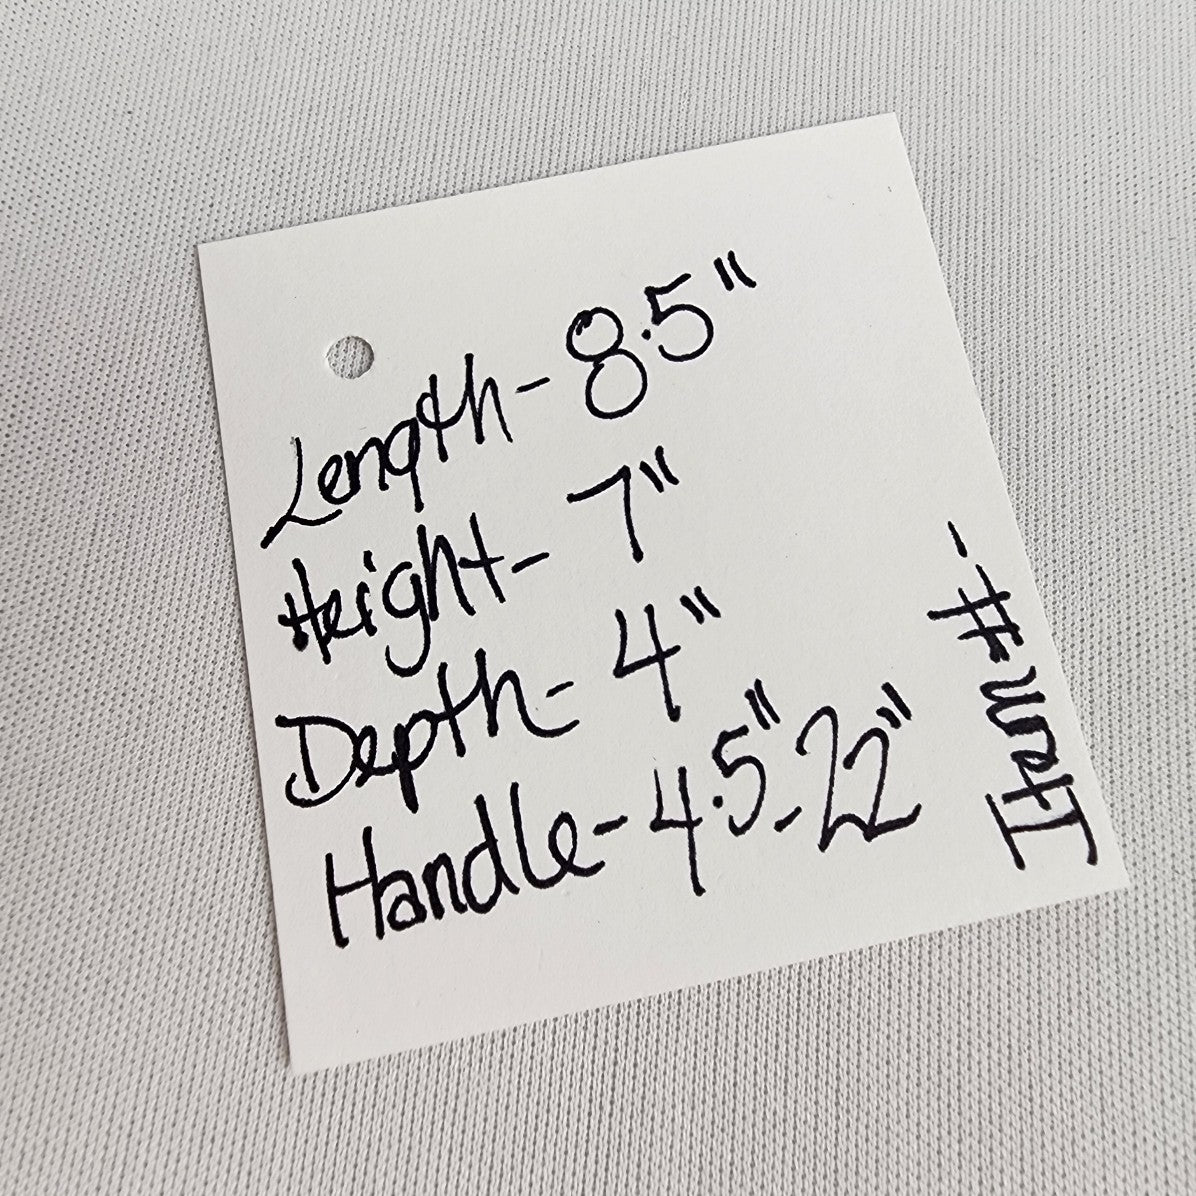 Length- 8.5"
Height- 7"
Depth- 4"
Handle- 4.5"-22"
Item #-